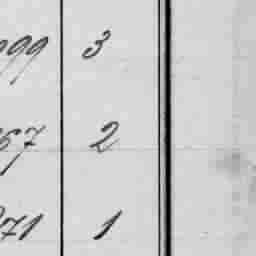 99 3
67 2
71 1